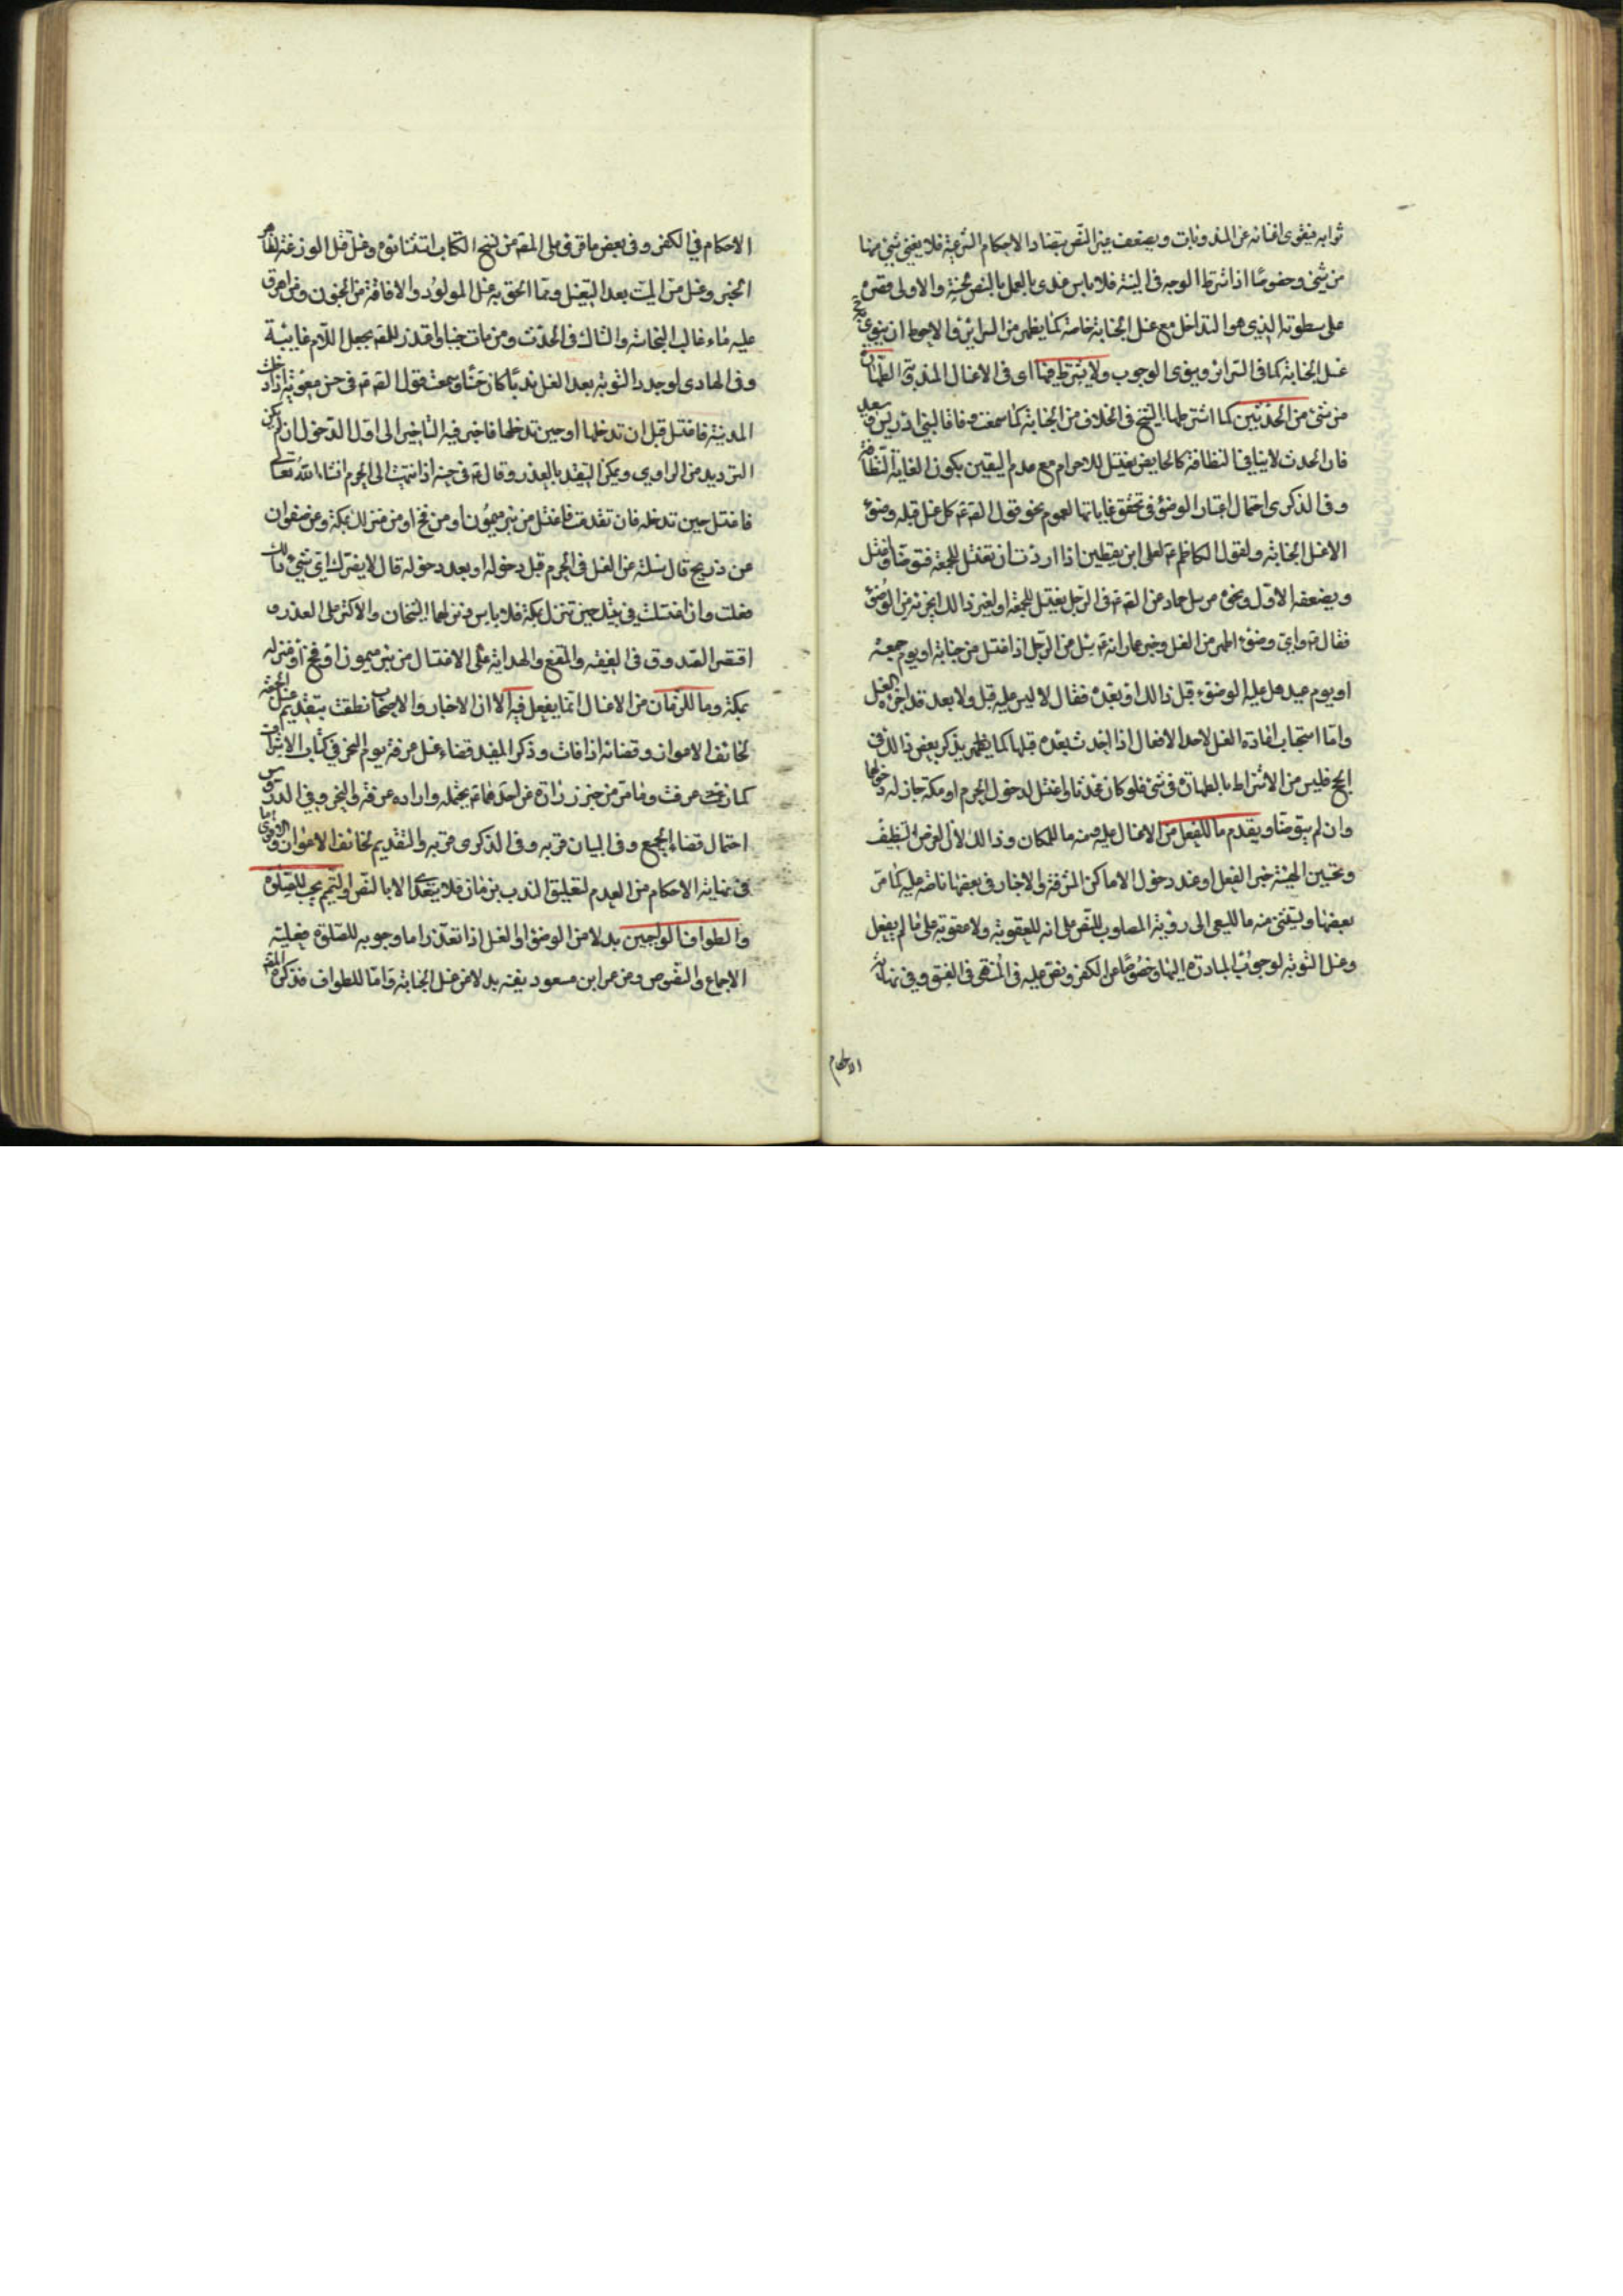 ثوابه فيقوى اغنائه عن المندوبات ويضعف غير النص بتضاد الاحكام الشرعية فلا يغني شيء منها
من شيء وخصوصا اذا اشترط الوجه في النية فلا باس عندى بالعمل بالنص بحسنه والاولى قصره
على سطوته الذي هو التداخل مع غسل الجنابة خاصة كما يظهر من السرائر والاحوط ان ينوي
غسل الجنابة كما في السرائر وينوى الوجوب ولا يشترط فيها اى في الاغسال المندوبة الطهارة
من شيء من الحدثين كما اشترطها الشيخ في الخلاف من الجنابة كما سمعت وفاقا لبني ادريس وسعيد
فان الحدث لا ينافي النظافة كالحايض يغتسل للاحرام مع عدم اليقين بكون الغاية النظافة
وفي الذكرى احتمال اعتبار الوضوء في تحقق غاياتها لعموم نحو قول الص ع كل غسل قبله وضوء
الا غسل الجنابة ولقول الكاظم ع لعلى ابن يقطين اذا اردت ان تغتسل للجمعة فتوضا واغتسل
ويضعفه الاول ونحوه مرسل حماد عن الص ع في الرجل يغتسل للجمعة او لغير ذالك ايجزيه من الوضوء
فقال ع واي وضوء اطهر من الغسل وخبر عمار انه ع سئل عن الرجل اذا اغتسل من جنابة او يوم جمعة
او يوم عيد هل عليه الوضوء قبل ذالك او بعده فقال لا ليس عليه قبل ولا بعد قد اجزاه الغسل
واما استحباب اعادة الغسل لاحد الافعال اذا احدث بعده قبلها كما يظهر بذكر بعض ذالك في
الحج فليس من الاشتراط بالطهارة في شيء فلو كان محدثا واغتسل لدخول الحرم او مكة جاز له دخولها
وان لم يتوضا ويقدم ما للفعل من الاغسال عليه ومنه ما للمكان وذالك لان الغرض التنظيف
وتحسين الهيئة حين الفعل او عند دخول الاماكن المشرفة والاخبار في بعضها ناصة عليه كما مر
بعضها ويستثنى منه ما للسعى الى رؤية المصلوب للنص على انه للعقوبة ولا عقوبة على ما لم يفعل
وغسل التوبة لوجوب المبادرة اليها وخصوصا عن الكفر ونص عليه في المنتهى في الفسق وفي نهاية
الاحكام
الاحكام في الكفر وفي بعض ما قرئ على المص من نسخ الكتاب استثناؤه وغسل قتل الوزغة لظاهر
الخبر وغسل مس الميت بعد التغسيل ومما الحق به غسل المولود والافاقة من الجنون ومن اهرق
عليه ماء غالب النجاسة والشاك في الحدث ومن مات جنبا واعتذر للمص بجعل اللام غايية
وفي الهادى لوجدد التوبة بعد الغسل ندبا كان حسنا وسمعت قول الص ع في حسن معوية اذا دخلت
المدينة فاغتسل قبل ان تدخلها او حين تدخلها فاخبر فيه التاخير الى اول الدخول ان لم يكن
الترديد من الراوي ويمكن التقييد بالعذر وقال ع في حسنه اذا انتهيت الى الحرم انشاء الله تعالى
فاغتسل حين تدخله فان تقدمت فاغتسل من بئر ميمون او من فخ او من منزلك بمكة وعن صفوان
عن ذريح قال سئلته عن الغسل في الحرم قبل دخوله او بعد دخوله قال لا يضرك اي شيء ذالك
فعلت وان اغتسلت في بيتك حين تنزل بمكة فلا باس ونزلهما الشيخان والاكثر على العذر و
اقتصر الصدوق في الفقيه والمقنع والهداية على الاغتسال من بئر ميمون او فخ او منزله
بمكة وما للزمان من الاغسال انما يفعل فيه الا ان الاخبار والاصحاب نطقت بتقديم غسل الجمعة
لخائف الاعواز وقضائه اذا فات وذكر المفيد قضاء غسل عرفة يوم النحر في كتاب الاشراف
كمان عرفت وما مر من خبر زرارة عن احدهما ع يحتمله وارادة عرفة والنحر وفي الدروس
احتمال قضاء الجميع وفي البيان قربه وفي الذكرى قربه والتقديم لخائف الاعواز والاقوى ما
في نهاية الاحكام من العدم لتعليق الندب بزمان فلا يتعدى الا بالنص والتيمم يجب للصلوة
والطواف الواجبين بدلا من الوضوء او الغسل اذا تعذرا ما وجوبه للصلوة فعليه
الاجماع والنصوص وعن عمر ابن مسعود نفيه بدلا من غسل الجنابة واما للطواف فذكره المص